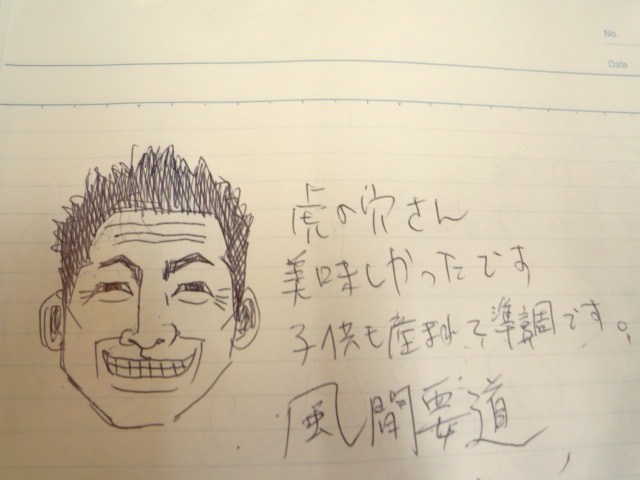 No.
Date
虎の穴さん
美味しかったです
子供も産まれて準調です。
風間要道